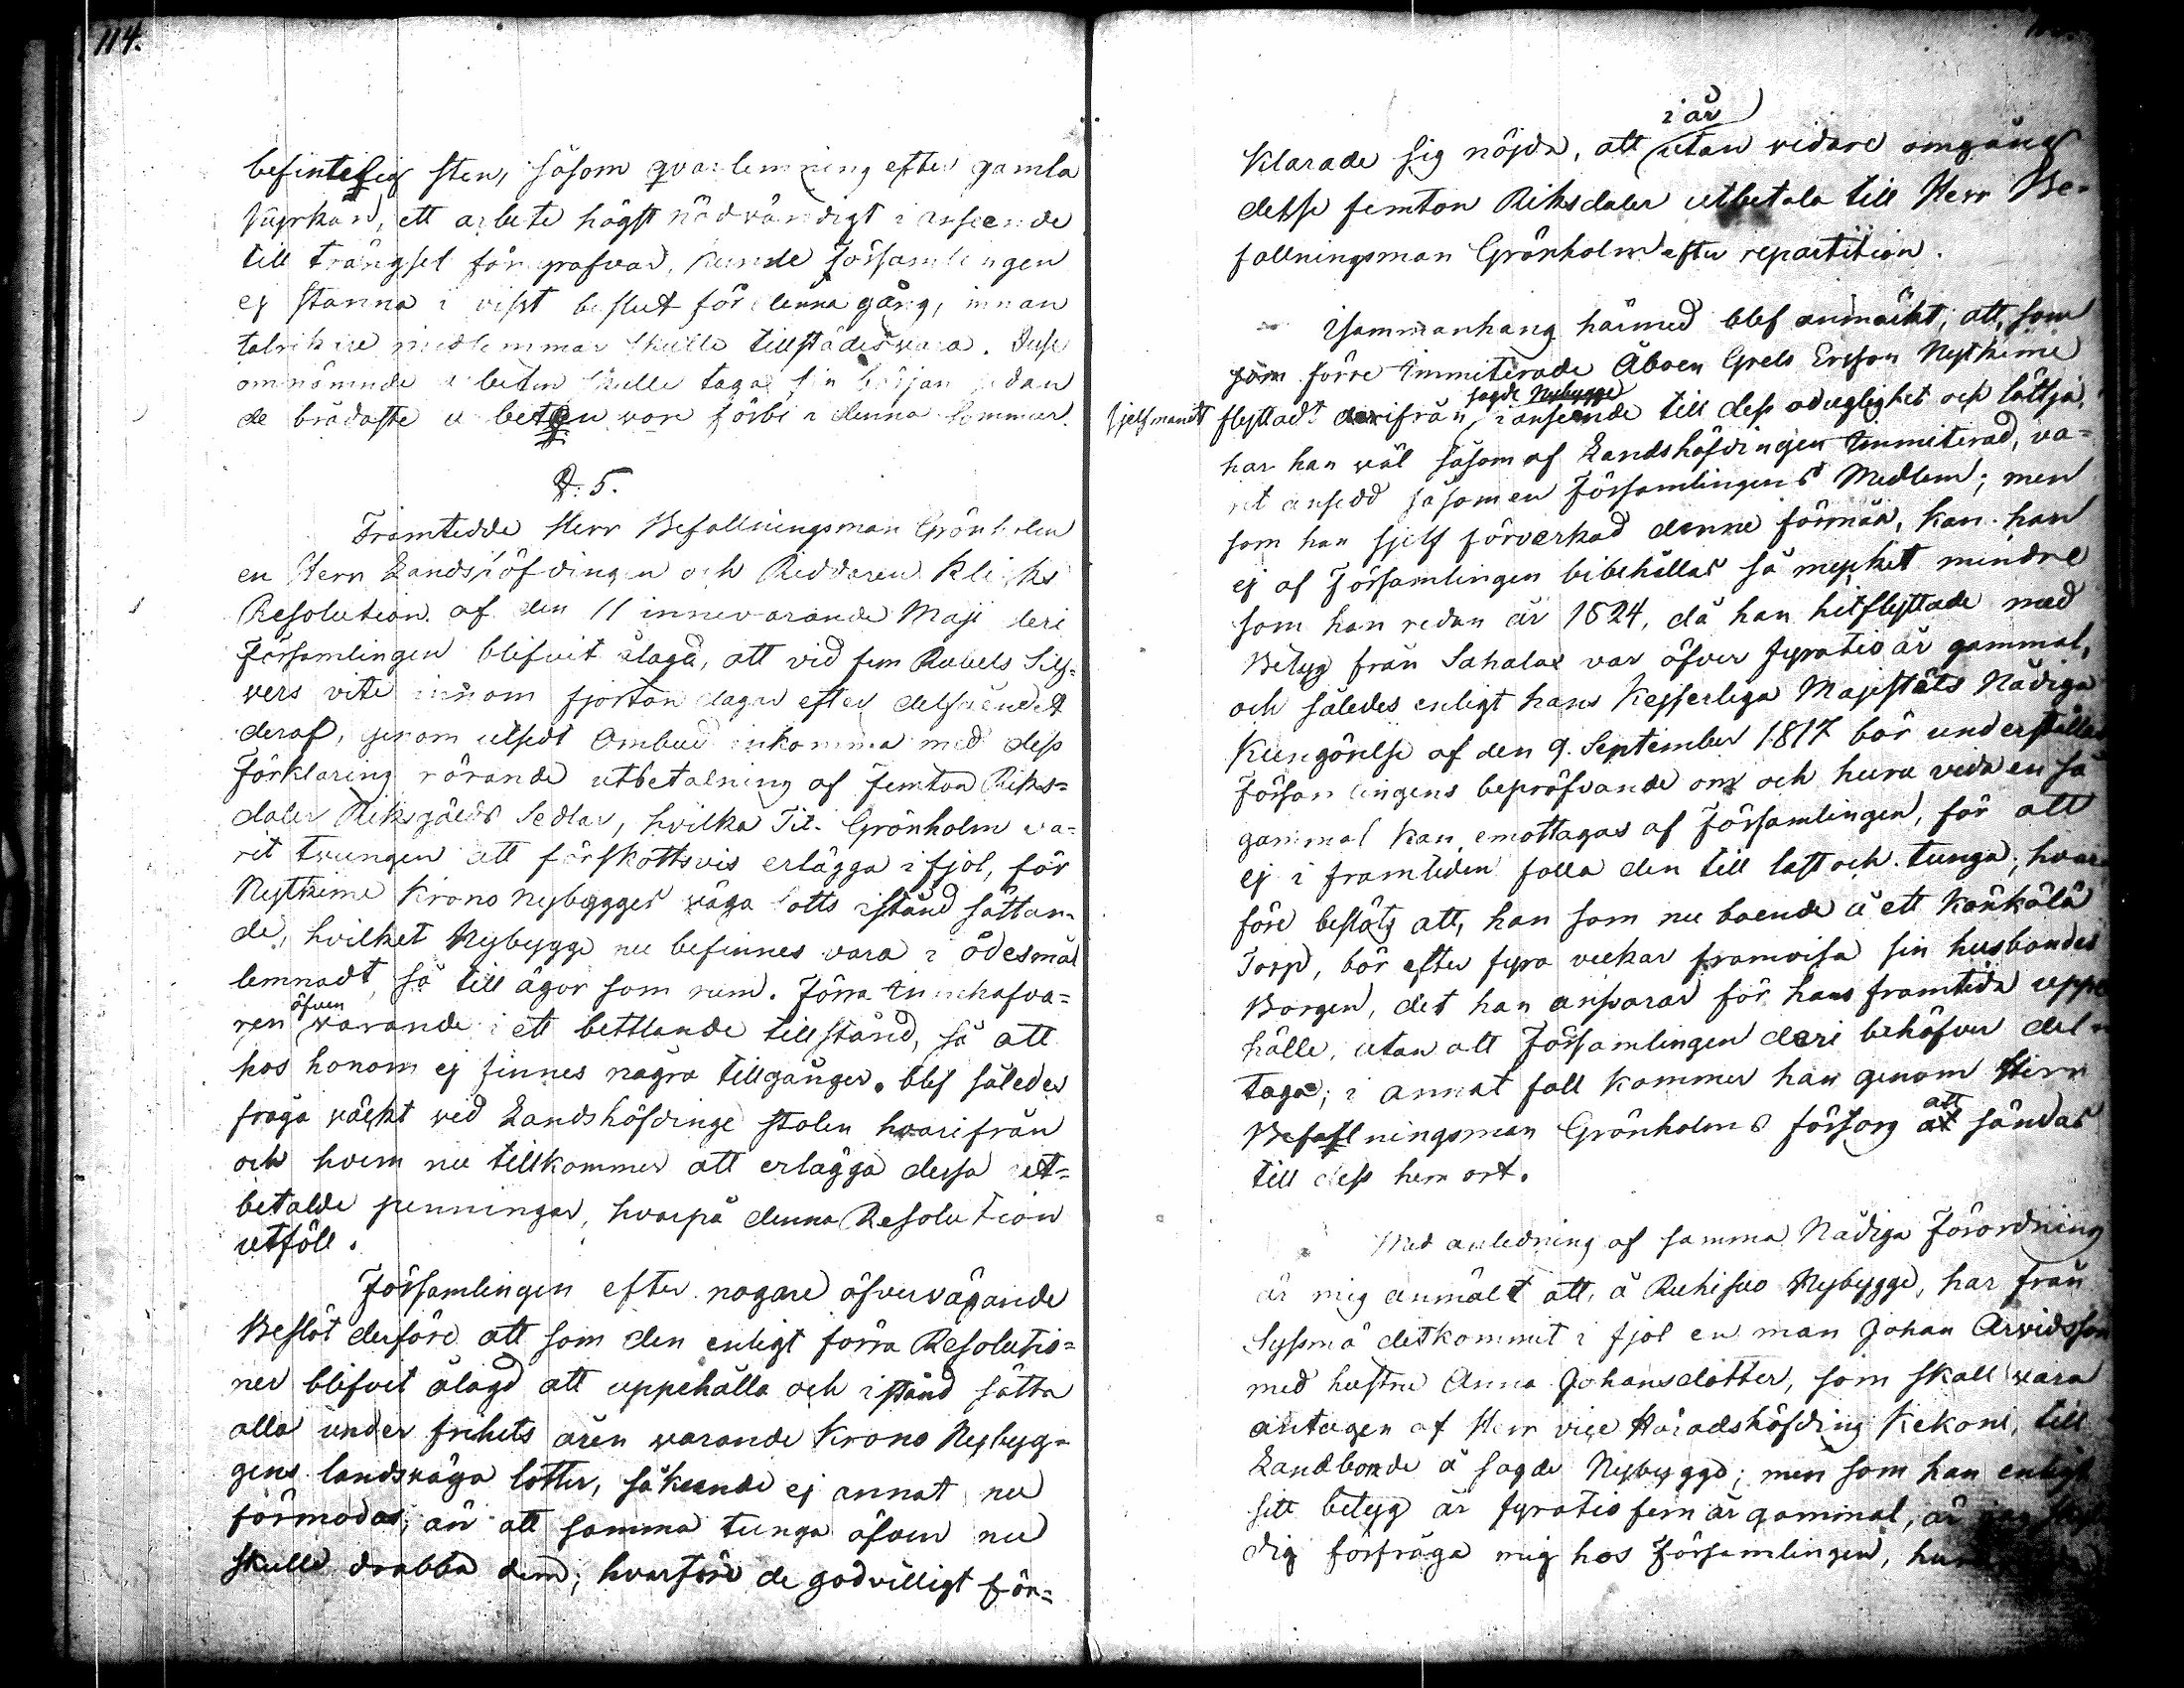 114.
befintelig sten, såsom qvarlemning efter gamla
kyrkan, ett arbete högst nödvändigt i anseende
till trängsel för grafvar, kunde församlingen
ej stanna i visst beslut för denna gång, innan
talrikare medlemmar skulle tillstädes vara. Dessa
omnämnde arbeten skulle taga sin början sedan
de brådaste arbeten vore förbi i denna sommar.
§. 5.
Framtedde Herr Befallningsman Grönholm
en Herr Landshöfdingen och Riddaren Klicks
Resolution af den 11 innevarande Maji deri
Församlingen blifvit ålagd, att vid fem Rubels Silf-
vers vite innom fjorton dagar efter delfåendet
deraf, genom utsedt Ombud inkomma med dess
Förklaring rörande utbetalning af femton Riks-
daler Riksgälds Sedlar, hvilka Tit. Grönholm va-
rit tvungen att förskottsvis erlägga i fjol, för
Nythime Krono nybygges väga lotts istånd sättan-
de, hvilket Nybygge nu befinnes vara i ödesmål
lemnadt, så till ägor som rum. Förra innehafva-
ren öfven varande i ett bettlande tillstånd, så att
hos honom ej finnes några tillgånger. blef således
fråga väckt vid Landshöfdinge stolen hvarifrån
och hvem nu tillkommer att erlägga dessa ut-
betalde penningar, hvarpå denna Resolution
utföll.
Församlingen efter nogare öfvervägande
Beslöt derföre att som den enligt förra Resolutio-
ner blifvit ålagd att uppehålla och istånd sätta
alla under frihets åren varande Krono Nybyg-
gens landsväga lotter, så kunde ej annat nu
förmodas, än att samma tunga öfven nu
skulle drabba dem; hvarföre de godvilligt för-
i år
klarade sig nöjda, att utan vidare omgång
desse femton Riksdaler utbetala till Herr Be-
fallningsman Grönholm efter repartition.
Isammanhang härmed blef anmärkt, att, som
som förre Immiterade Åboen Grels Ersson Nythime
sagde Nybygge
sjelfmant flyttadt derifrån, i anseende till dess oduglighet och lättja,
har han väl såsom af Landshöfdingen Immiterad, va-
rit ansedd såsom en Församlingens Medlem; men
som han sjelf förverkad denne förmån, kan han
ej af Församlingen bibehållas så mycket mindre
som han redan år 1824, då han hitflyttade med
Betyg från Sahalax var öfver fyratio år gammal,
och således enligt hans Kejserliga Majestäts Nådiga
Kungörelse af den 9. September 1817 bör underställas
Församlingens bepröfvande om och huru vida en så
gammal kan emottagas af Församlingen, för att
ej i framtiden falla den till last och tunga, hvar-
före beslöts att, han som nu boende å ett Könkölä
Torp, bör efter fyra veckar framvisa sin husbondes
Borgen, det han ansvarar för hans framtida uppe
hälle, utan att Församlingen deri behöfver del-
taga; i annat fall kommer han genom Herr
Befallningsman Grönholms försorg at att sändas
till dess hem ort.
Med anledning af samma Nådiga Förordning
är mig anmält att, å Ruhisuo Nybygge, har från
Syssmä ditkommit i fjol en man Johan Arvidsson
med hustru Anna Johansdotter, som skall vara
antagen af Herr vice Häradshöfding Kekoni, till
Landbonde å sagde Nybygge; men som han enligt
sitt betyg är fyratio fem år gammal, är
dig förfråga mig hos Församlingen,